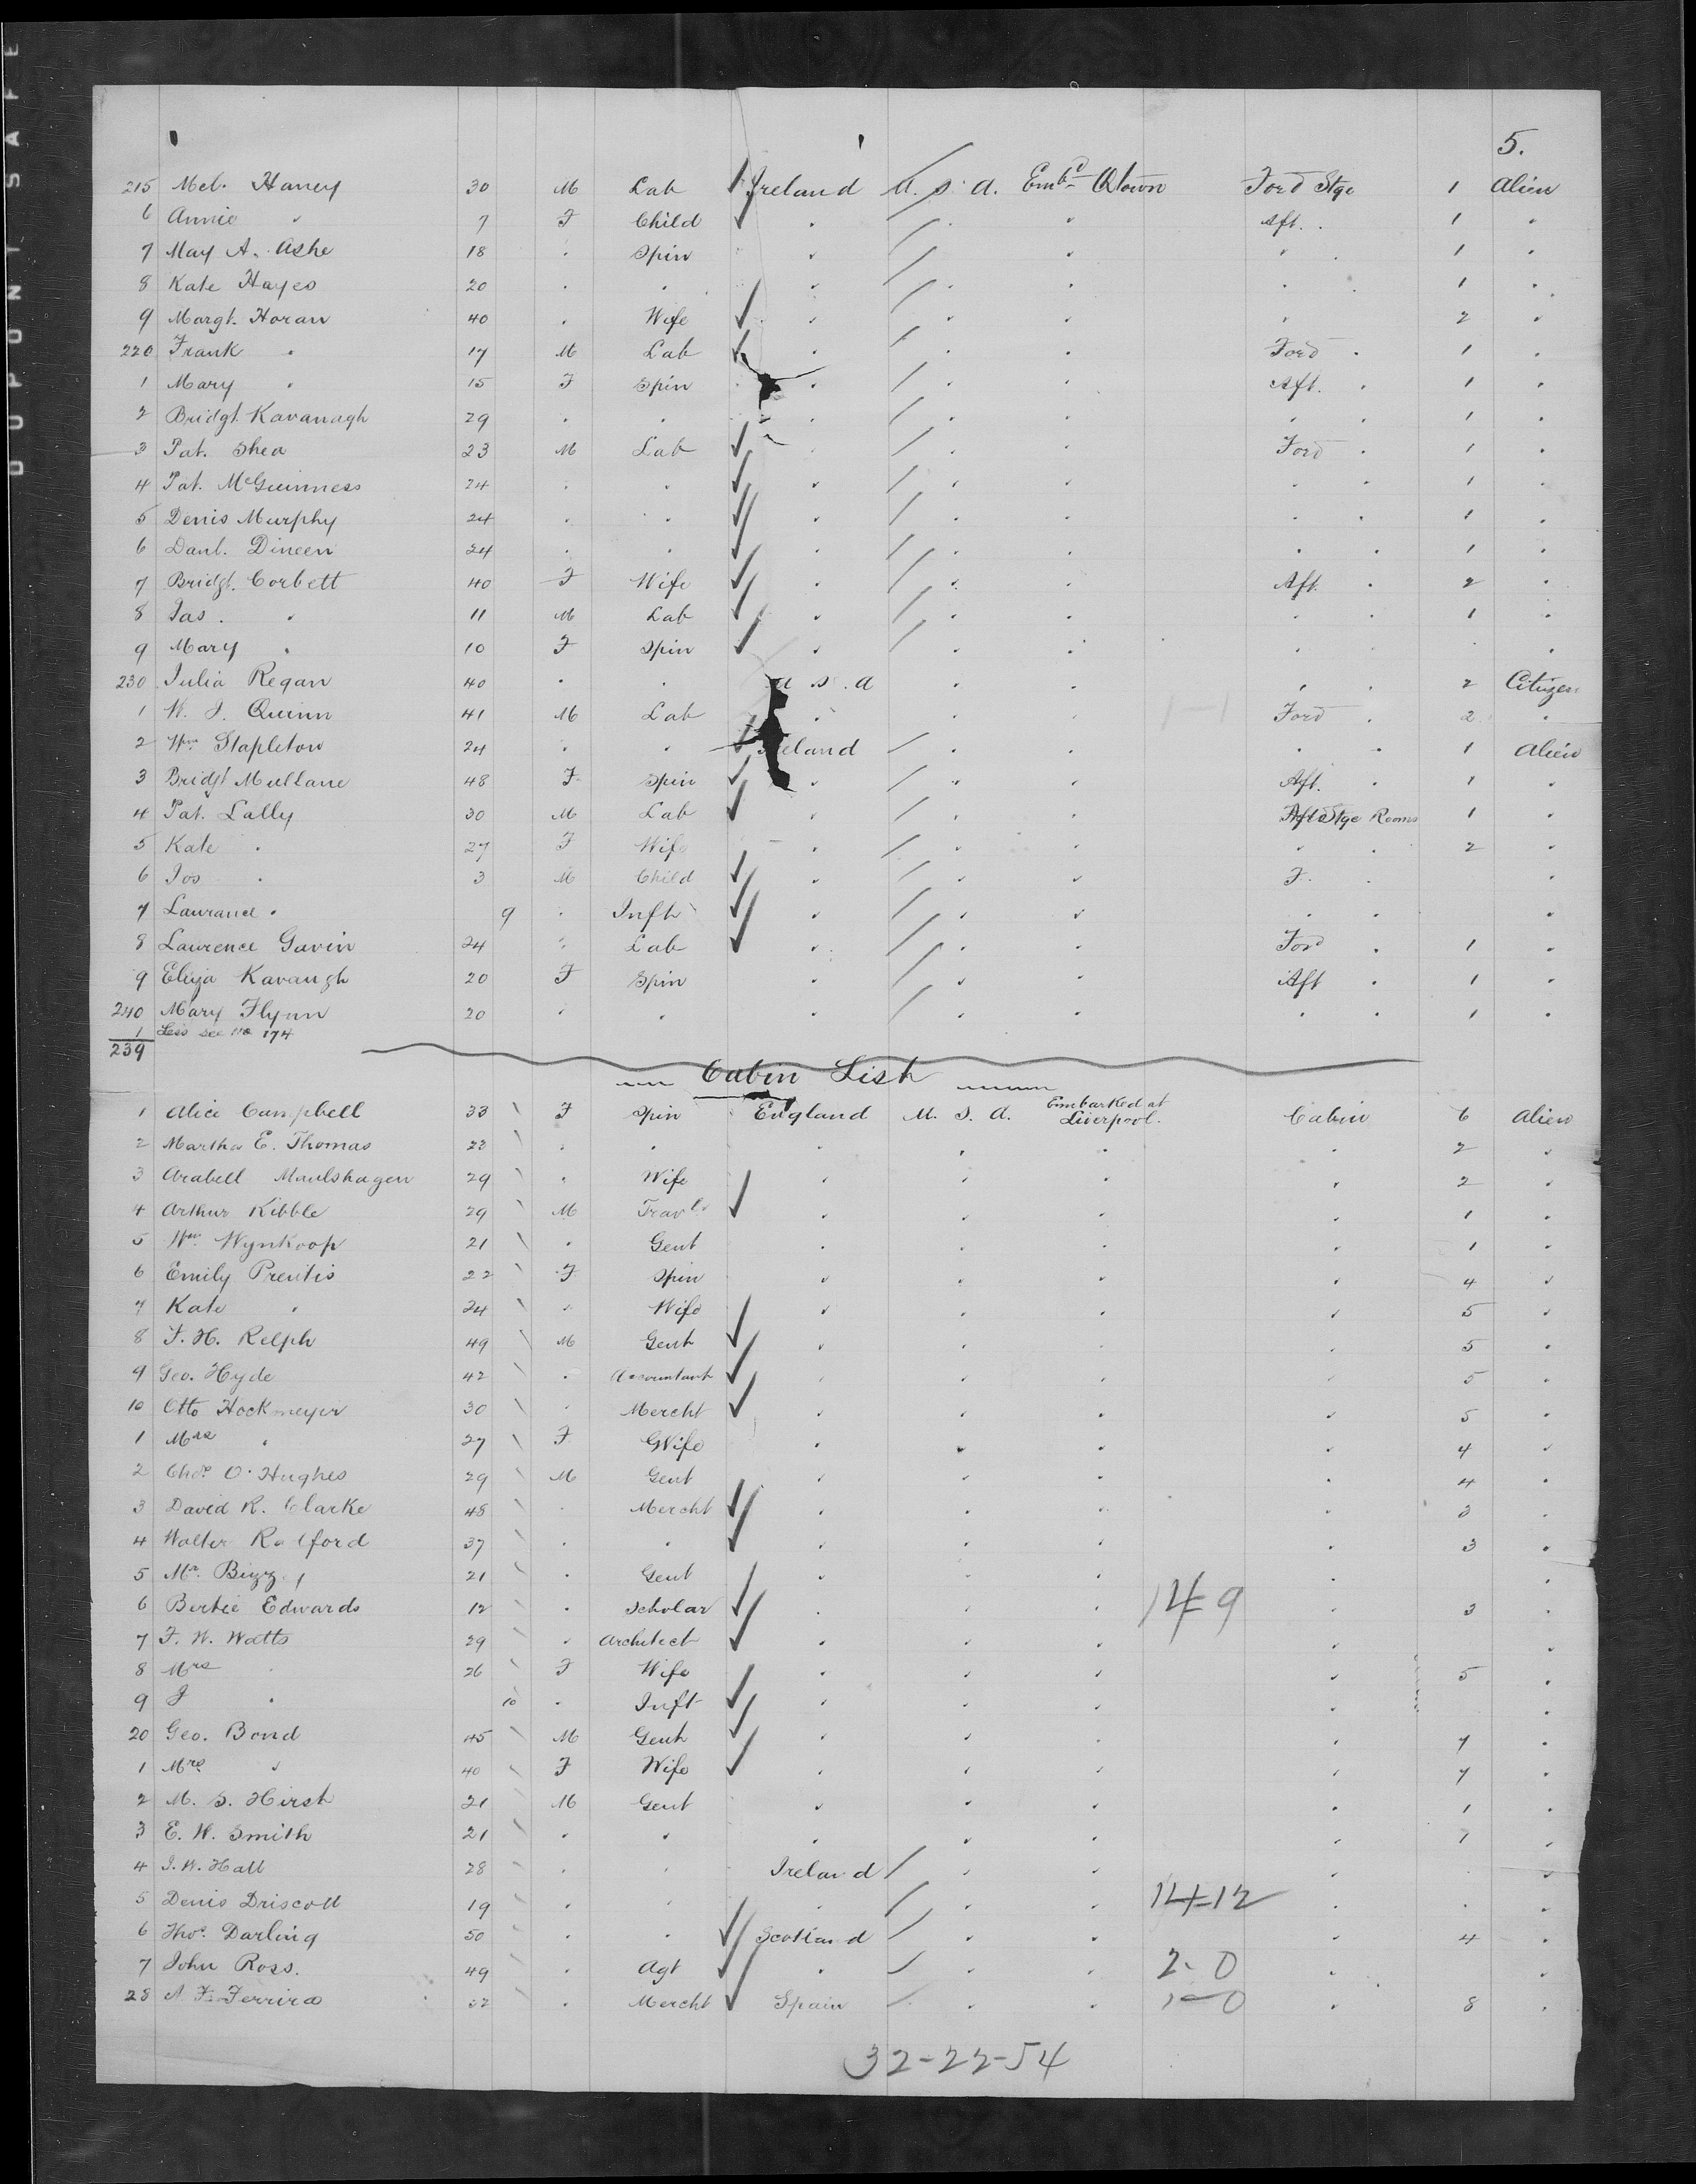 DUPONT SAFE
5.
215 Mel. Haney 30 M Lab Ireland U. S. A. Embd Qtown Ford Stge 1 Alien
6 Annie " 7 F Child " " " Aft. " 1 "
7 May A. Ashe 18 " Spin " " " " " 1 "
8 Kate Hayes 20 " " " " " " " 1 "
9 Margt. Horan 40 " Wife " " " " 2 "
220 Frank " 17 M Lab " " " Ford " 1 "
1 Mary " 15 F Spin " " " Aft. " 1 "
2 Bridgt. Kavanagh 29 " " " " " " " 1 "
3 Pat. Shea 23 M Lab " " " Ford " 1 "
4 Pat. McGuinness 24 " " " " " " " 1 "
5 Denis Murphy 24 " " " " " " " 1 "
6 Danl. Dineen 24 " " " " " " " 1 "
7 Bridgt. Corbett 40 F Wife " " " Aft. " 2 "
8 Jas. " 11 M Lab " " " " " 1 "
9 Mary " 10 F Spin " " " " " "
230 Julia Regan 40 " " U S. A " " " " 2 Citizen
1 W. J. Quinn 41 M Lab " " " Ford " 2 "
2 Wm Stapleton 24 " " Ireland " " " " 1 Alien
3 Bridgt Mullane 48 F Spin " " " Aft. " 1 "
4 Pat. Lally 30 M Lab " " " Stge Rooms 1 "
5 Kate " 27 F Wife " " " " " 2 "
6 Jos " 3 M Child " " " F. " "
7 Laurance " 9 " Inft " " " " " "
8 Laurence Gavin 24 " Lab " " " Ford " 1 "
9 Eliza Kavangh 20 F Spin " " " Aft " 1 "
240 Mary Flynn 20 " " " " " " " 1 "
1 Less see No 174
239
Cabin List
1 Alice Campbell 33 F Spin England U. S. A. Embarked at Liverpool. Cabin 6 Alien
2 Martha E. Thomas 23 " " " " " " 2 "
3 Arabell Maulshagen 29 " Wife " " " " 2 "
4 Arthur Kibble 29 M Travlr " " " " 1 "
5 Wm. Wynkoop 21 " Gent " " " " 1 "
6 Emily Prentis 22 F Spin " " " " 4 "
7 Kate " 24 " Wife " " " " 5 "
8 F. H. Relph 49 M Gent " " " " 5 "
9 Geo. Hyde 42 " Accountant " " " " 5 "
10 Otto Hockmeyer 30 " Mercht " " " " 5 "
1 Mrs " 27 F Wife " " " " 4 "
2 Chas. O. Hughes 29 M Gent " " " " 4 "
3 David R. Clarke 48 " Mercht " " " " 3 "
4 Walter 37 " " " " " " 3 "
5 Mr. 21 " Gent " " " " "
6 Bertie Edwards 12 " Scholar " " " 14=9 " 3 "
7 F. W. Watts 29 " Architect " " " " "
8 Mrs " 26 F Wife " " " " 5 "
9 J " 10 " Inft " " " " "
20 Geo. Bond 45 M Gent " " " " 7 "
1 Mrs " 40 F Wife " " " " 7 "
2 M. S. Hirsh 21 M Gent " " " " 1 "
3 E. W. Smith 21 " " " " " " 1 "
4 J. W. Hall 28 " " Ireland " " " " "
5 Denis Driscoll 19 " " " " " 14=12 " " "
6 Thos. Darling 50 " " Scotland " " " 4 "
7 John Ross. 49 " Agt " " " 2-0 " "
28 A F. Ferrira 32 " Mercht Spain " " 1-0 " 8 "
32-22-54